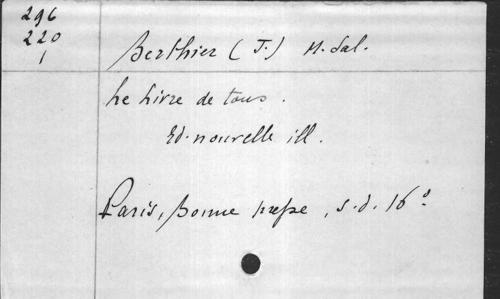 296
220
1
Berthier (J.) M. Sal.
Le livre de tous.
Ed. nouvelle ill.
Paris, Bonne presse, s.d. 16°